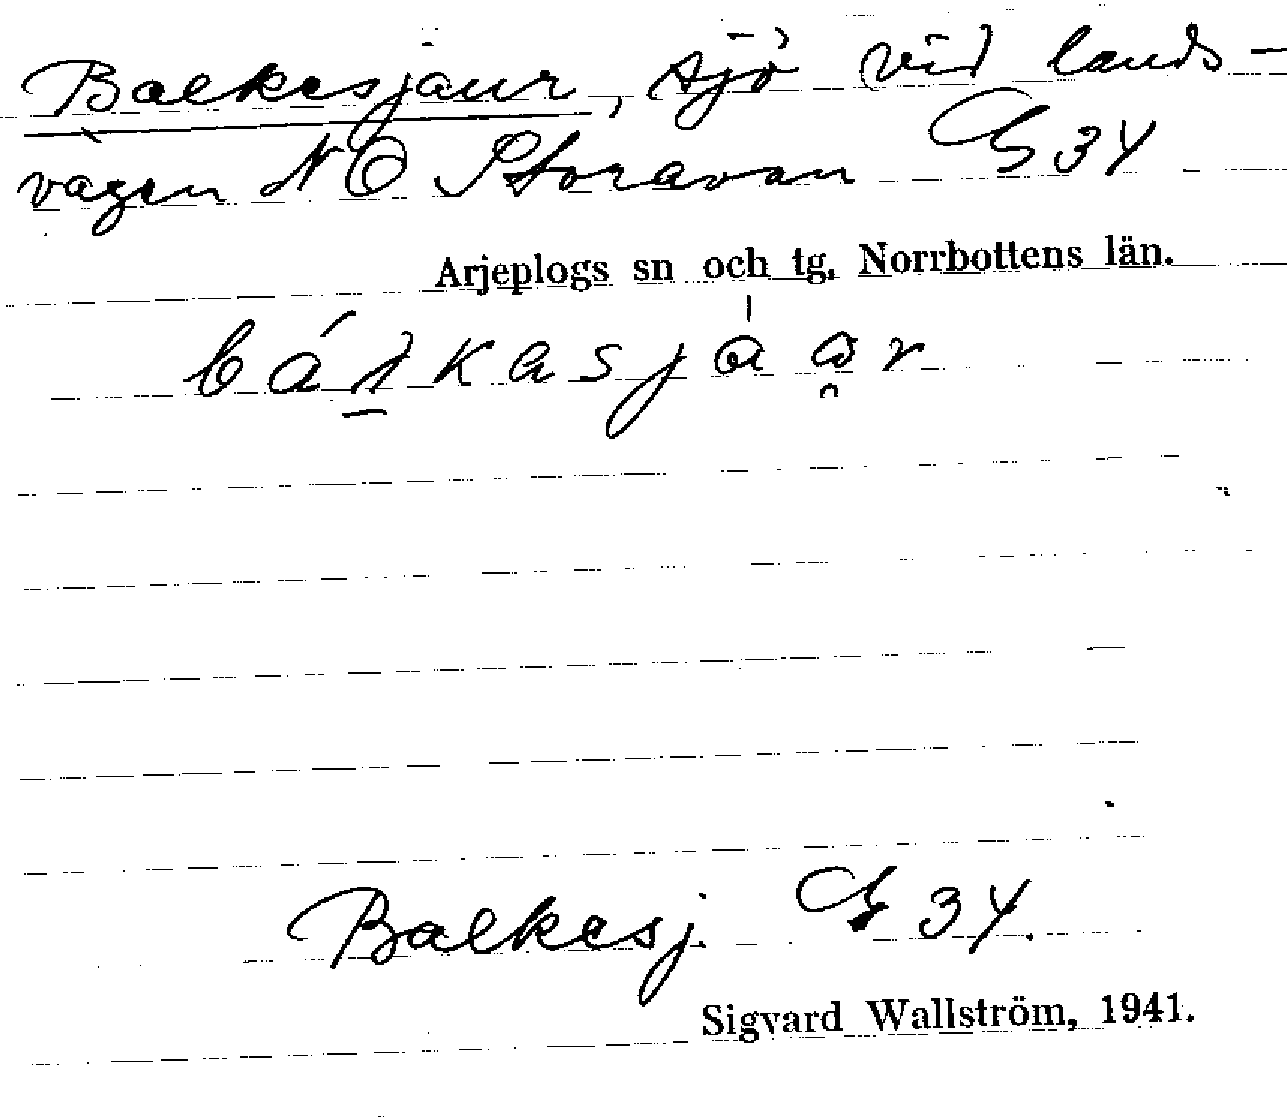 Balkesjaur, sjö vid lands-
vägen NO Storavan G 34
Arjeplogs sn och tg. Norrbottens län.
Balkesj. G 34.
Sigvard Wallström, 1941.